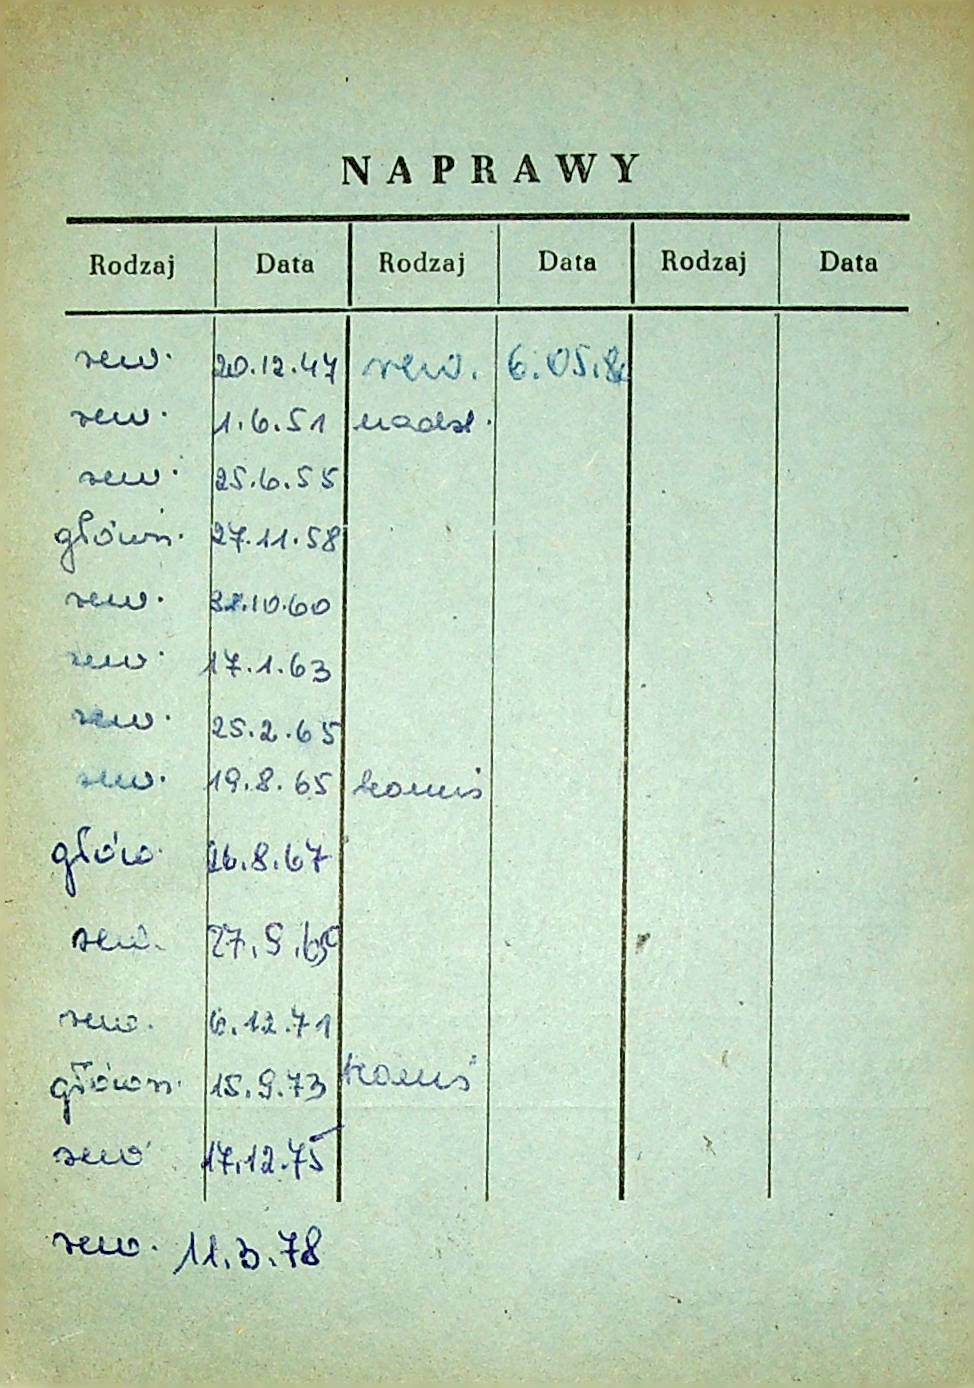 NAPRAWY
Rodzaj Data Rodzaj Data Rodzaj Data
rew. 20.12.47 rew. 6.05.8
rew. 1.6.51 nadzl.
rew. 25.6.55
główn. 27.11.58
rew. 31.10.60
rew. 17.1.63
rew. 25.2.65
rew. 19.8.65 komis
głów. 26.8.67
rew. 27.9.69
rew. 6.12.71
główn. 15.9.73 komis
rew. 17.12.75
rew. 11.3.78